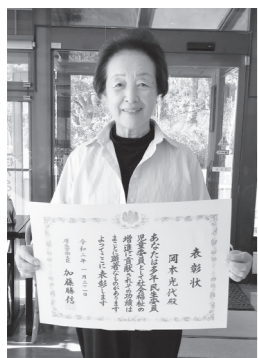 表彰状
岡本光代殿
あなたは多年民生委員
児童委員として社会福祉の
増進に貢献されその功績は
まことに顕著なものがあります
よってここに表彰します
令和二年一月二十一日
厚生労働大臣 加藤勝信